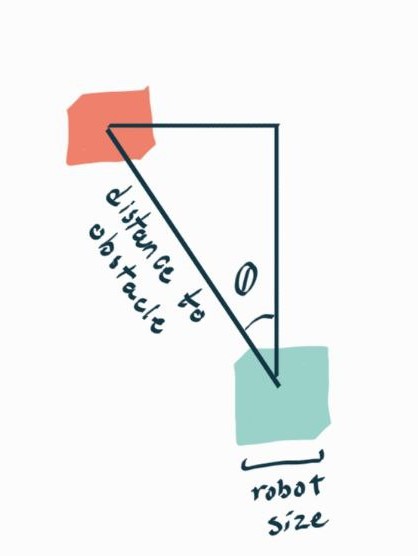 distance to
obstacle
θ
robot
size